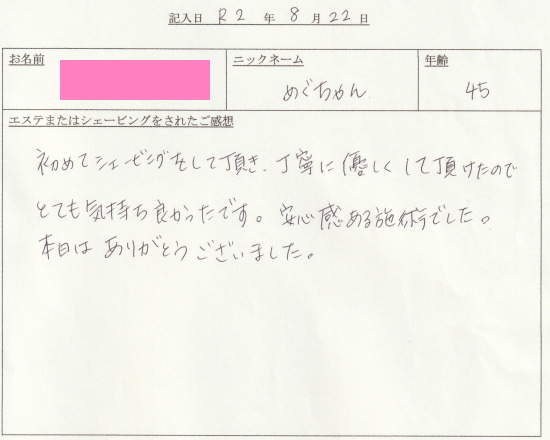 記入日 R2 年 8 月 22 日
お名前 ニックネーム 年齢
めぐちゃん 45
エステまたはシェービングをされたご感想
初めてシェービングをして頂き、丁寧に優しくして頂けたので
とても気持ち良かったです。安心感ある施術でした。
本日はありがとうございました。